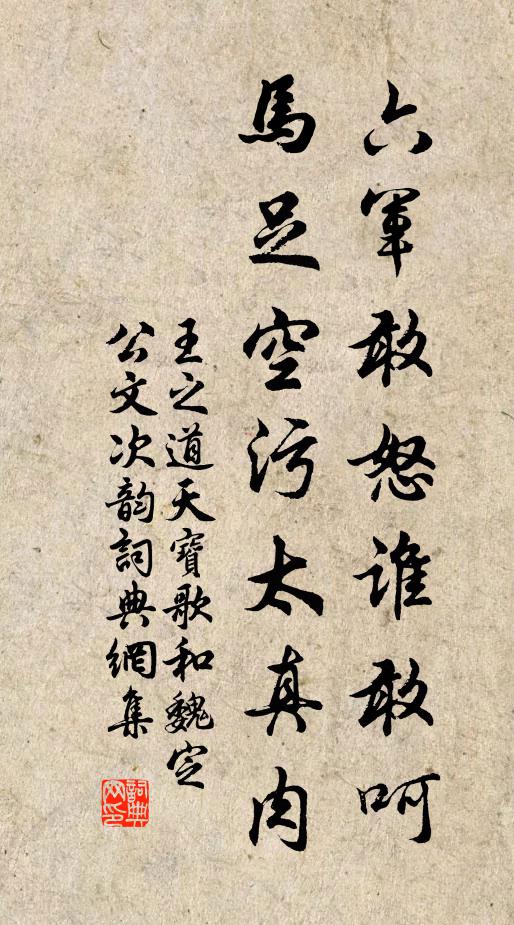 六軍敢怒誰敢呵
馬足空污太真肉
王之道天寶歌和魏定
公文次韵詞典網集
詞典网印